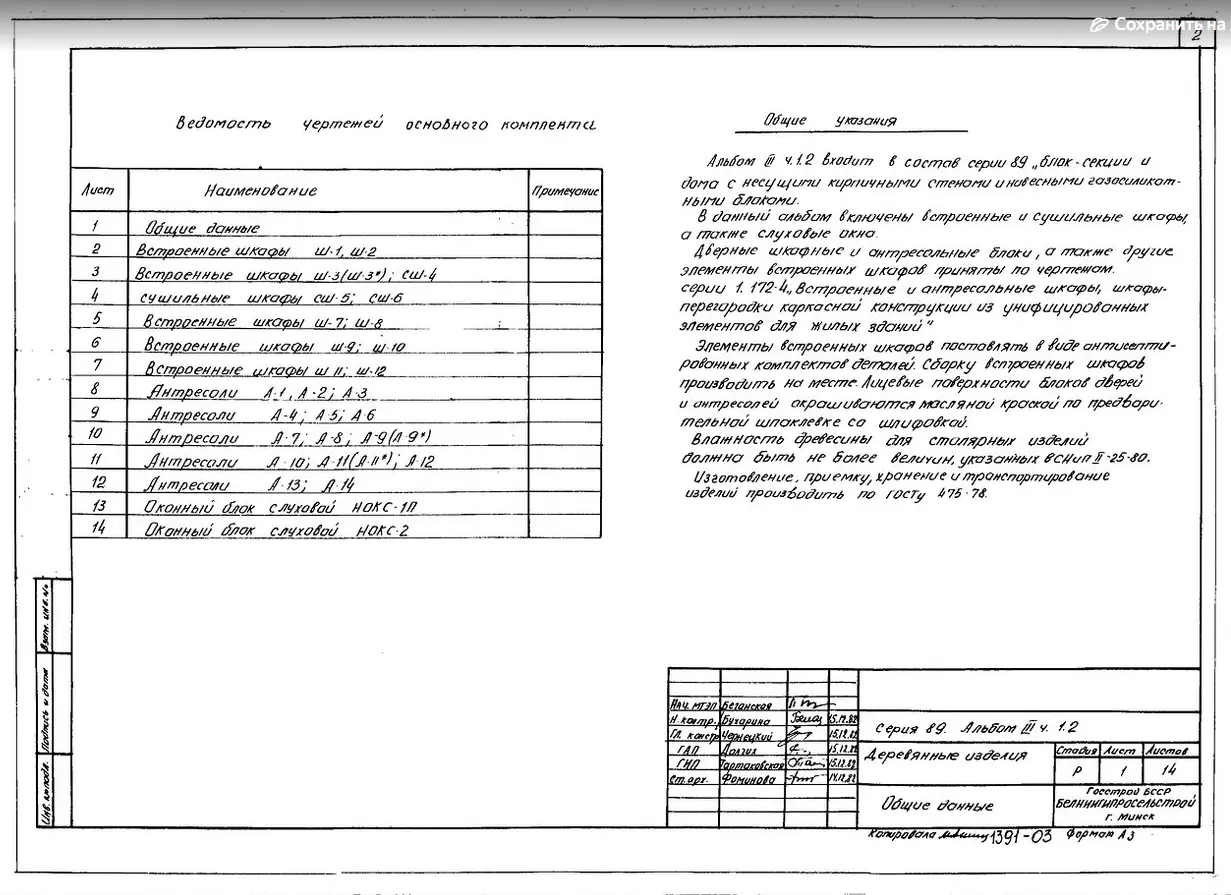 Сохранить на
2
Ведомость чертежей основного комплекта
Лист Наименование Примечание
1 Общие данные
2 Встроенные шкафы Ш-1, Ш-2
3 Встроенные шкафы Ш-3(Ш-3*); СШ-4
4 Сушильные шкафы СШ-5; СШ-6
5 Встроенные шкафы Ш-7; Ш-8
6 Встроенные шкафы Ш-9; Ш-10
7 Встроенные шкафы Ш 11; Ш-12
8 Антресоли А-1, А-2; А-3
9 Антресоли А-4; А-5; А-6
10 Антресоли А-7; А-8; А-9(А-9*)
11 Антресоли А-10; А-11(А-11*); А-12
12 Антресоли А-13; А-14
13 Оконный блок слуховой НОКС-1П
14 Оконный блок слуховой НОКС-2
Общие указания
Альбом III ч.1.2 входит в состав серии 89 „блок-секции и
дома с несущими кирпичными стенами и навесными газосиликат-
ными блоками.
В данный альбом включены встроенные и сушильные шкафы,
а также слуховые окна.
Дверные шкафные и антресольные блоки, а также другие
элементы встроенных шкафов приняты по чертежам.
серии 1.172-4 „Встроенные и антресольные шкафы, шкафы-
перегородки каркасной конструкции из унифицированных
элементов для жилых зданий"
Элементы встроенных шкафов поставлять в виде антисепти-
рованных комплектов деталей. Сборку встроенных шкафов
производить на месте. Лицевые поверхности блоков дверей
и антресолей окрашиваются масляной краской по предвари-
тельной шпаклевке со шлифовкой.
Влажность древесины для столярных изделий
должна быть не более величин, указанных вСНиП II-25-80.
Изготовление, приемку, хранение и транспортирование
изделий производить по ГОСТу 475-78.
Взам. инв. №
Подпись и дата
Инв. № подл.
Нач. МТЭП Беганская
Н. контр. Бухарина 15.12.82
Гл. констр Чернецкий 15.12.82
ГАП Долгих 15.12.82
ГИП Тартаковская 15.12.82
Ст. арх. Фоминова 14.12.82
Серия 89. Альбом III ч. 1.2
Деревянные изделия
Стадия Лист Листов
Р 1 14
Общие данные
Госстрой БССР
БелНИИгипросельстрой
г. Минск
Копировала 1391-03 Формат А3